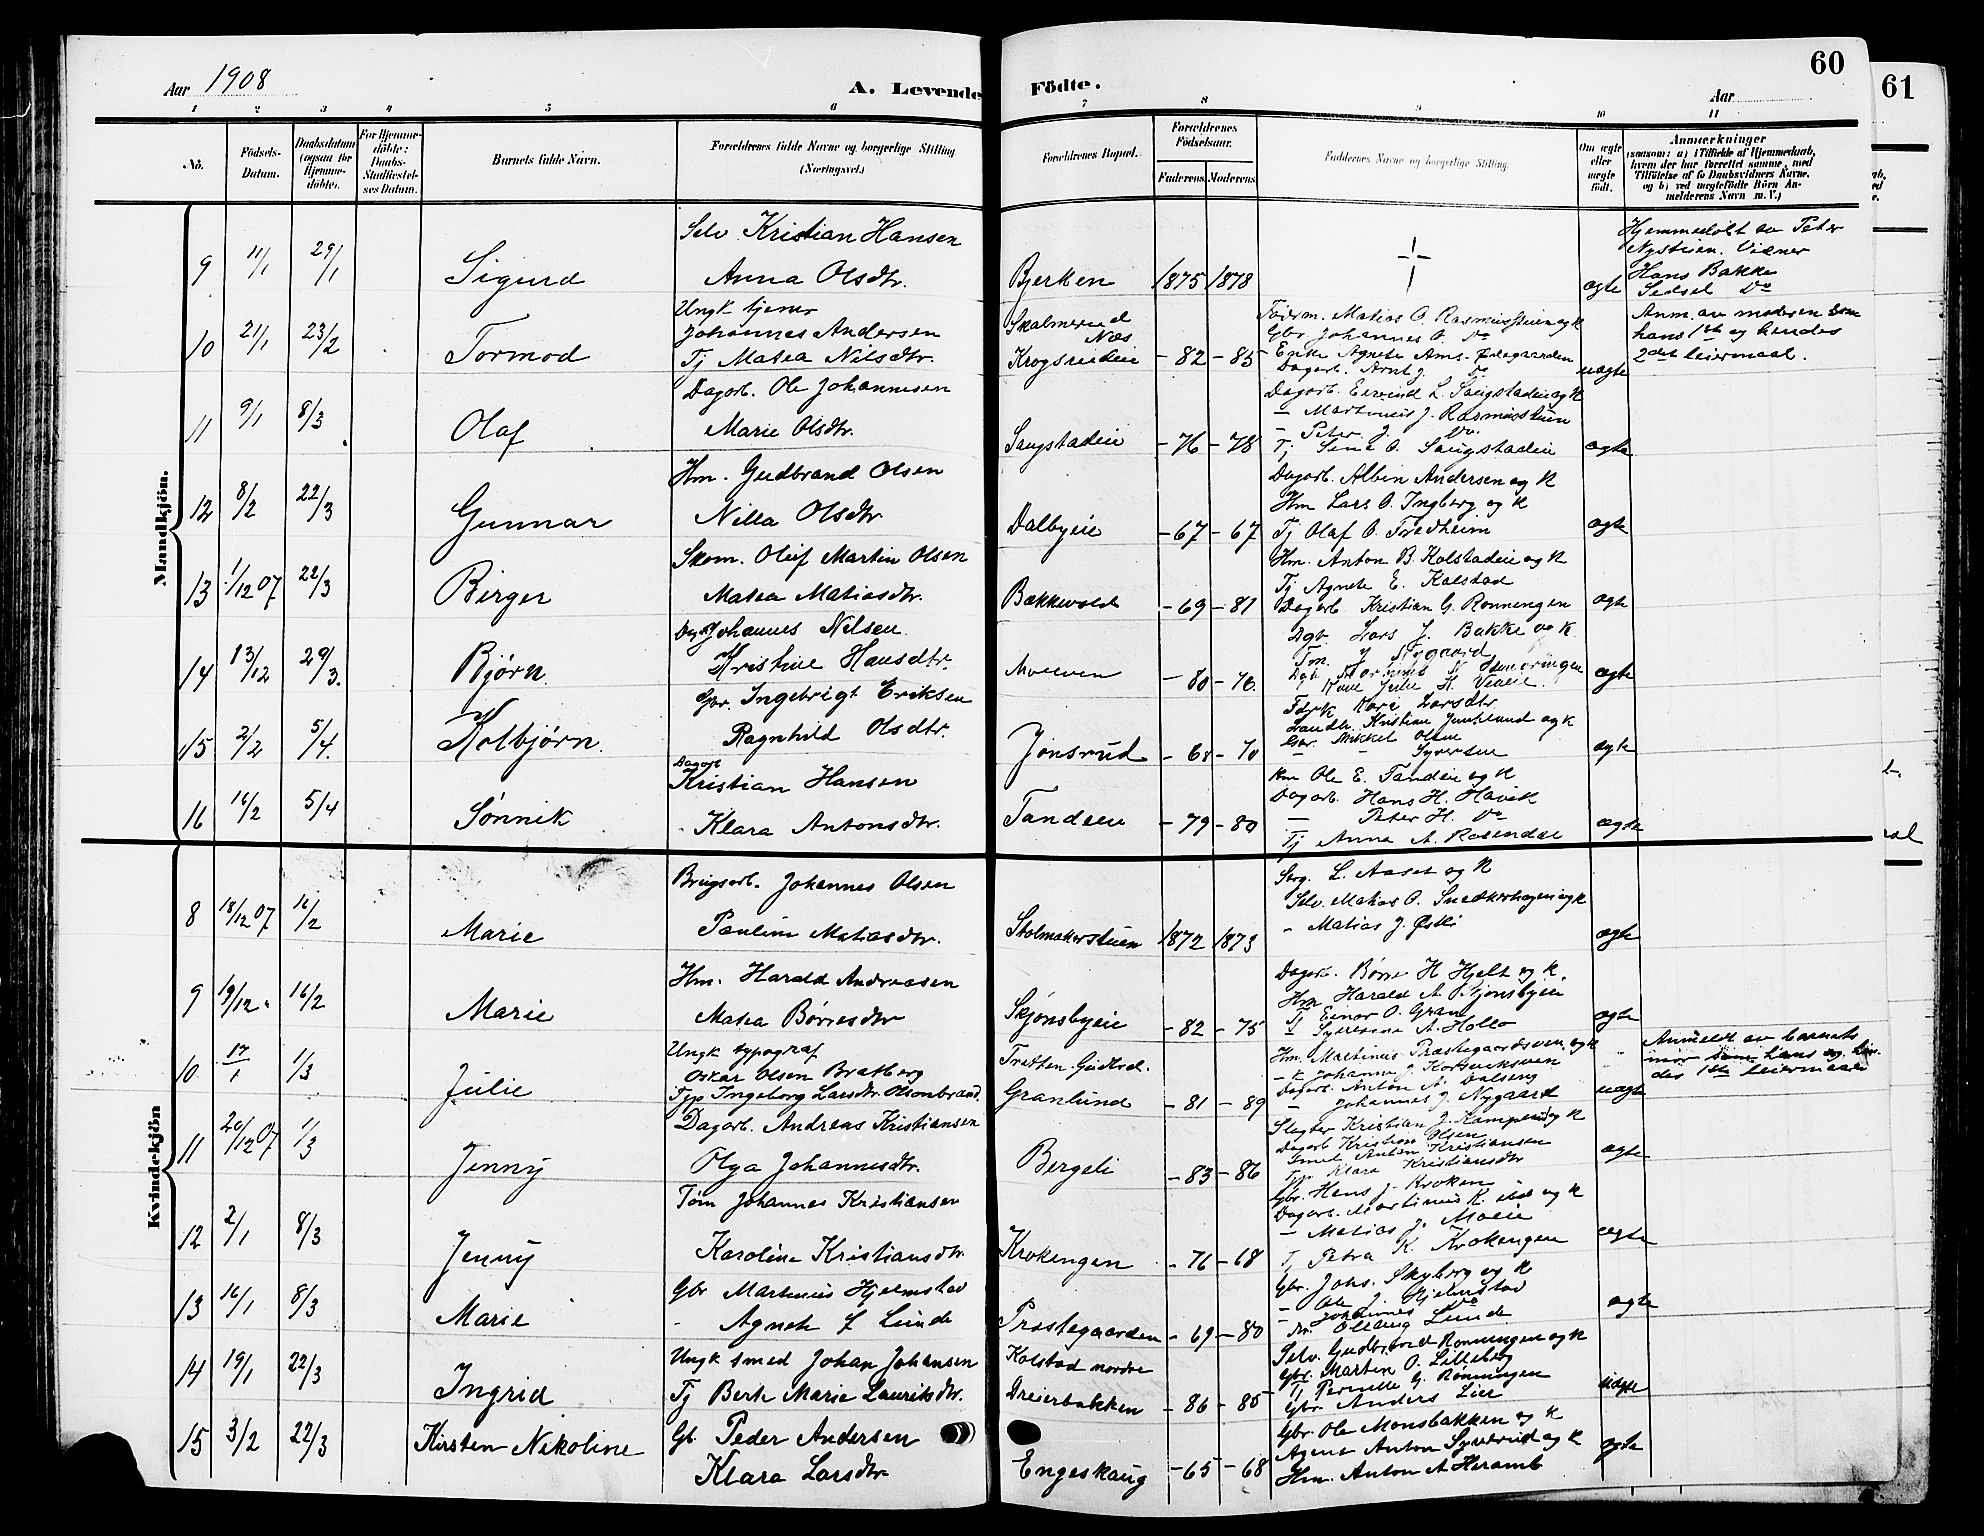 60
61
Aar 1908
A. Levende Födte.
Aar
1 2 3 4 5 6 7 8 9 10 11
Nö.
Födsels-Datum.
Daabsdatum (ogsaa for Hjemme-döbte).
For Hjemme-döbte: Daabs-Stadfæstel-ses Datum.
Barnets fulde Navn.
Forældrenes fulde Navne og borgerlige Stilling (Næringsvei.)
Forældrenes Bopæl.
Forældrenes Födselsaar.
Faderens. Moderens.
Faddernes Navne og borgerlige Stilling.
Om ægte eller uægte födt.
Anmærkninger
(saasom: a) i Tilfælde af Hjemmedaab, hvem der har forrettet samme, med Tilföielse af to Daabsvidners Navne, og b) ved uægtefödte Börn Anmelderens Navn m. V.)
Mandkjön.
9 11/1 29/1 Sigurd
Selv. Kristian Hansen
Anna Olsdtr.
Bjerken 1875 1878
ægte
Hjemmedøbt av Peter
Nystuen. Vidner
Hans Bakke
Sidsel Do
10 21/1 23/2 Tormod
Ungk tjener
Johannes Andersen
Tj Matea Nilsdtr.
Næs
Krogsveeneie - 82 - 85
Johannes O. Do
Enke Agnete Ams. Ødegaarden
Dagarb. Arnt J. Do
uægte
Anm. av moderen som
hans 1ste og hendes
2det leiermaal.
11 9/1 8/3 Olaf
Dagarb. Ole Johannesen
Marie Olsdtr.
Saugstadeie - 76 - 78
Dagarb. Eivind L. Saugstadeie og K
- Martinus J. Rasmusstuen
- Peter J. Do.
Tj Sina O. Saugstadeie
ægte
12 8/2 22/3 Gunnar
Hm. Gudbrand Olsen
Nilla Olsdtr.
Dalbyeie - 67 - 67
Dagarb. Albin Andersen og K
Hm Lars O. Ingberg og K
Tj Olaf O. Fredheim
ægte
13 1/12 07 22/3 Birger
Skom. Oluf Martin Olsen
Matea Matiasdtr.
Bakkevold - 69 - 81
Hm. Anton B. Kolstadeie og K
Tj Agnete E. Kolstad
Dagarb. Kristian G. Rønningen
ægte
14 13/12 29/3. Bjørn
Johannes Nilsen
Kristine Hansdtr.
Moeven - 80 - 76.
Dgb Lars J. Bakke og K.
Tm. J Nygaard
ægte
15 2/2 5/4. Kolbjørn
Gbr. Ingebrigt Eriksen
Ragnhild Olsdtr.
Jønsrud - 68 - 70
Kari Larsdtr
Gbr. Mikkel Olsen
- - Syversen
ægte
16 16/2 5/4 Sønnik
Dagarb
Kristian Hansen
Klara Antonsdtr.
Tandeeie - 79 - 80
Hm Ole E. Tandeie og K
Dagarb. Hans H. Havik
- Peter H. Do
Tj Anna A. Rosendal
ægte
Kvindekjön
8 18/12 07 16/2 Marie
Brugsarb. Johannes Olsen
Pauline Matiasdtr.
Stolmakerstuen 1872 1873
Serg. L. Aaset og K
Selv. Matias O. Snedkerhagen og K
- Matias J. Østli
ægte
9 19/12 " 16/2 Marie
Hm. Harald Andreasen
Matea Børresdtr
Skjønsbyeie - 82 - 75
Dagarb. Børre H Hjelt og K.
Hm Harald A. Skjønsbyeie
Tj Einar O. Gran
ægte
10 17/1 1/3 Julie
Ungk typograf
Oskar Olsen Bratberg
Fpp Ingeborg Larsdtr. Olsenbrænd.
Tretten. Gudbrd.
Granlund - 81 - 89
Hm. Martinus Præstegaardsven. og K
Dagarb. Anton A. Dalseng
- Johannes J. Nygaard
uægte
Anmeldt av barnets
mor som hans og hen-
des 1ste leiermaal
11 20/12 07 1/3 Jenny
Dagarb. Andreas Kristiansen
Olga Johannesdtr.
Bergeli - 83 - 86
Slagter Kristian J. Kampen og K
Dagarb Kristian Olsen
Smed Anton Kristiansen
Klara Kristiansdtr
ægte
12 2/1 8/3 Jenny
Tøm Johannes Kristiansen
Karoline Kristiansdtr.
Krokengen - 76 - 68
Gbr. Hans J. Kroken
- Matias J. Moeie
Tj Petra K. Krokengen
ægte
13 16/1 8/3 Marie
Gbr Martinius Hjelmstad
- Agnete f Lunde
Præstegaarden - 69 - 80
Gbr. Johs. Skyberg og K
- Ole J. Hjelmstad
- Johannes Do
Olaug Lunde
ægte
14 19/1 22/3 Ingrid
Ungk smed Johan Johansen
Tj Berte Marie Lauritsdtr.
Kolstad nordre
Dreierbakken - 86 - 85
Selv. Gudbrand Rønningen og K
Gbr. Martin O. Lilleberg
Tj Pernille G. Rønningen
Gbr Anders Lier
uægte
15 3/2 22/3 Kirsten Nikoline
Gb. Peder Andersen
Klara Larsdtr
Engeskaug - 65 - 68
Gbr. Ole Monsbakken og K
Agent Anton Syverud og K
Hm. Anton A Heramb
ægte